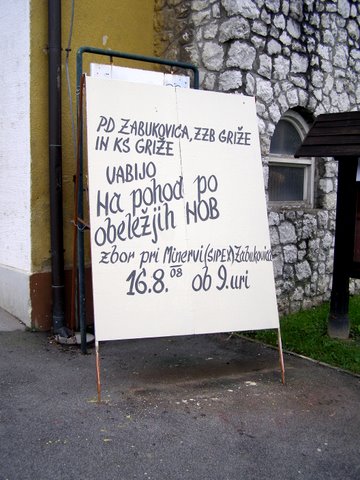 PD ZABUKOVICA, ZZB GRIŽE
IN KŠ GRIŽE
VABIJO
Na pohod po
obeležjih NOB
zbor pri Minervi (SIPEK) Zabukovica
16.8.08 ob 9. uri